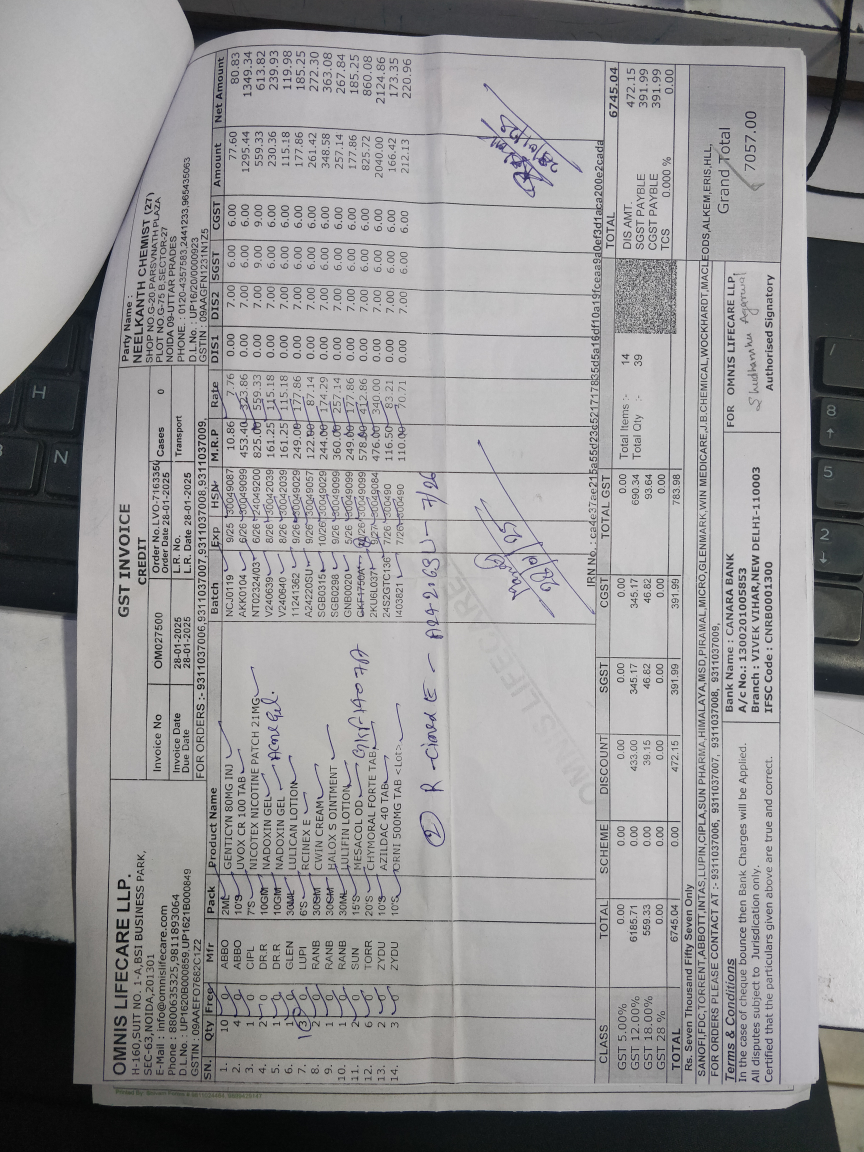 GST INVOICE
CREDIT
OMNIS LIFECARE LLP.
H-160,SUIT NO. 1-A,BSI BUSINESS PARK,
SEC-63,NOIDA,201301
E-Mail : info@omnislifecare.com
Phone : 8800635325,9811893064
D.L.No. : UP1620B000859,UP1621B000849
GSTIN : 09AAEFO7682C1Z2
Invoice No OM027500 Order No. LVO-7163350
Order Date 28-01-2025 Cases 0
Invoice Date 28-01-2025 L.R. No. Transport
Due Date 28-01-2025 L.R. Date 28-01-2025
FOR ORDERS :- 9311037006,9311037007,9311037008,9311037009,
Party Name :
NEELKANTH CHEMIST (27)
SHOP NO.G-20,PARSVNATH PLAZA
PLOT NO.G-75 B,SECTOR-27
NOIDA 09-UTTAR PRADES
PHONE. : 0120-4357583,2441233,965435063
D.L.No. : UP16/20/0000923
GSTIN : 09AAGFN1231N1Z5
SN. Qty Free Mfr Pack Product Name Batch Exp HSN M.R.P Rate DIS1 DIS2 SGST CGST Amount Net Amount
1. 10 0 ABBO 2ML GENTICYN 80MG INJ NCJ0119 9/25 30049087 10.86 7.76 0.00 7.00 6.00 6.00 77.60 80.83
2. 4 0 ABBO 10'S UVOX CR 100 TAB AKK0104 8/26 30049099 453.40 323.86 0.00 7.00 6.00 6.00 1295.44 1349.34
3. 1 0 CIPL 7'S NICOTEX NICOTINE PATCH 21MG NT02324/03 6/26 24049200 825.00 559.33 0.00 7.00 9.00 9.00 559.33 613.82
4. 2 0 DR.R 10GM NADOXIN GEL V240639 8/26 30042039 161.25 115.18 0.00 7.00 6.00 6.00 230.36 239.93
5. 1 0 DR.R 10GM NADOXIN GEL Acne Gel. V240640 8/26 30042039 161.25 115.18 0.00 7.00 6.00 6.00 115.18 119.98
6. 1 0 GLEN 30ML LULICAN LOTION 11241362 9/26 30049029 249.00 177.86 0.00 7.00 6.00 6.00 177.86 185.25
7. 3 0 LUPI 6'S RCINEX E A24220SU 9/26 30049057 122.00 87.14 0.00 7.00 6.00 6.00 261.42 272.30
8. 2 0 RANB 30GM CWIN CREAM SGB0315 10/26 30049029 244.00 174.29 0.00 7.00 6.00 6.00 348.58 363.08
9. 1 0 RANB 30GM HALOX S OINTMENT SGB0298 9/26 30049099 360.00 257.14 0.00 7.00 6.00 6.00 257.14 267.84
10. 1 0 RANB 30ML LULIFIN LOTION GNB0020 5/26 30049099 249.00 177.86 0.00 7.00 6.00 6.00 177.86 185.25
11. 2 0 SUN 15'S MESACOL OD GKF1407A GKF1750A /26 30049099 578.00 412.86 0.00 7.00 6.00 6.00 825.72 860.08
12. 6 0 TORR 20'S CHYMORAL FORTE TAB 2KU6L037 9/27 30049084 476.00 340.00 0.00 7.00 6.00 6.00 2040.00 2124.86
13. 2 0 ZYDU 10'S AZILDAC 40 TAB 24S2GTC136 7/26 300490 116.50 83.21 0.00 7.00 6.00 6.00 166.42 173.35
14. 3 0 ZYDU 10'S ORNI 500MG TAB <Lot> I403821 7/26 300490 110.00 70.71 0.00 7.00 6.00 6.00 212.13 220.96
② R-cinex E - A24216SU - 7/26
OMNIS LIFECARE
28/01/25
IRN No.: ca4e37ae215a55d23c521717835d5a16df10a19fceaa9a0ef3d1aca200e2cada
CLASS TOTAL SCHEME DISCOUNT SGST CGST TOTAL GST
GST 5.00% 0.00 0.00 0.00 0.00 0.00 0.00
GST 12.00% 6185.71 0.00 433.00 345.17 345.17 690.34
GST 18.00% 559.33 0.00 39.15 46.82 46.82 93.64
GST 28 % 0.00 0.00 0.00 0.00 0.00 0.00
TOTAL 6745.04 0.00 472.15 391.99 391.99 783.98
Total Items :- 14
Total Qty :- 39
TOTAL 6745.04
DIS AMT. 472.15
SGST PAYBLE 391.99
CGST PAYBLE 391.99
TCS 0.000 % 0.00
Rs. Seven Thousand Fifty Seven Only
SANOFI,FDC,TORRENT,ABBOTT,INTAS,LUPIN,CIPLA,SUN PHARMA,HIMALAYA,MSD,PIRAMAL,MICRO,GLENMARK,WIN MEDICARE,J.B.CHEMICAL,WOCKHARDT,MACLEODS,ALKEM,ERIS,HLL,
FOR ORDERS PLEASE CONTACT AT :- 9311037006, 9311037007, 9311037008, 9311037009,
Grand Total
7057.00
Terms & Conditions
In the case of cheque bounce then Bank Charges will be Applied.
All disputes subject to Jurisdication only.
Certified that the particulars given above are true and correct.
Bank Name : CANARA BANK
A/c No.: 13002010058553
Branch : VIVEK VIHAR,NEW DELHI-110003
IFSC Code : CNRB0001300
FOR OMNIS LIFECARE LLP.
Shudhanshu Agarwal
Authorised Signatory